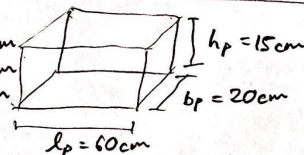 m
m
n
h_p = 15cm
b_p = 20cm
l_p = 60cm